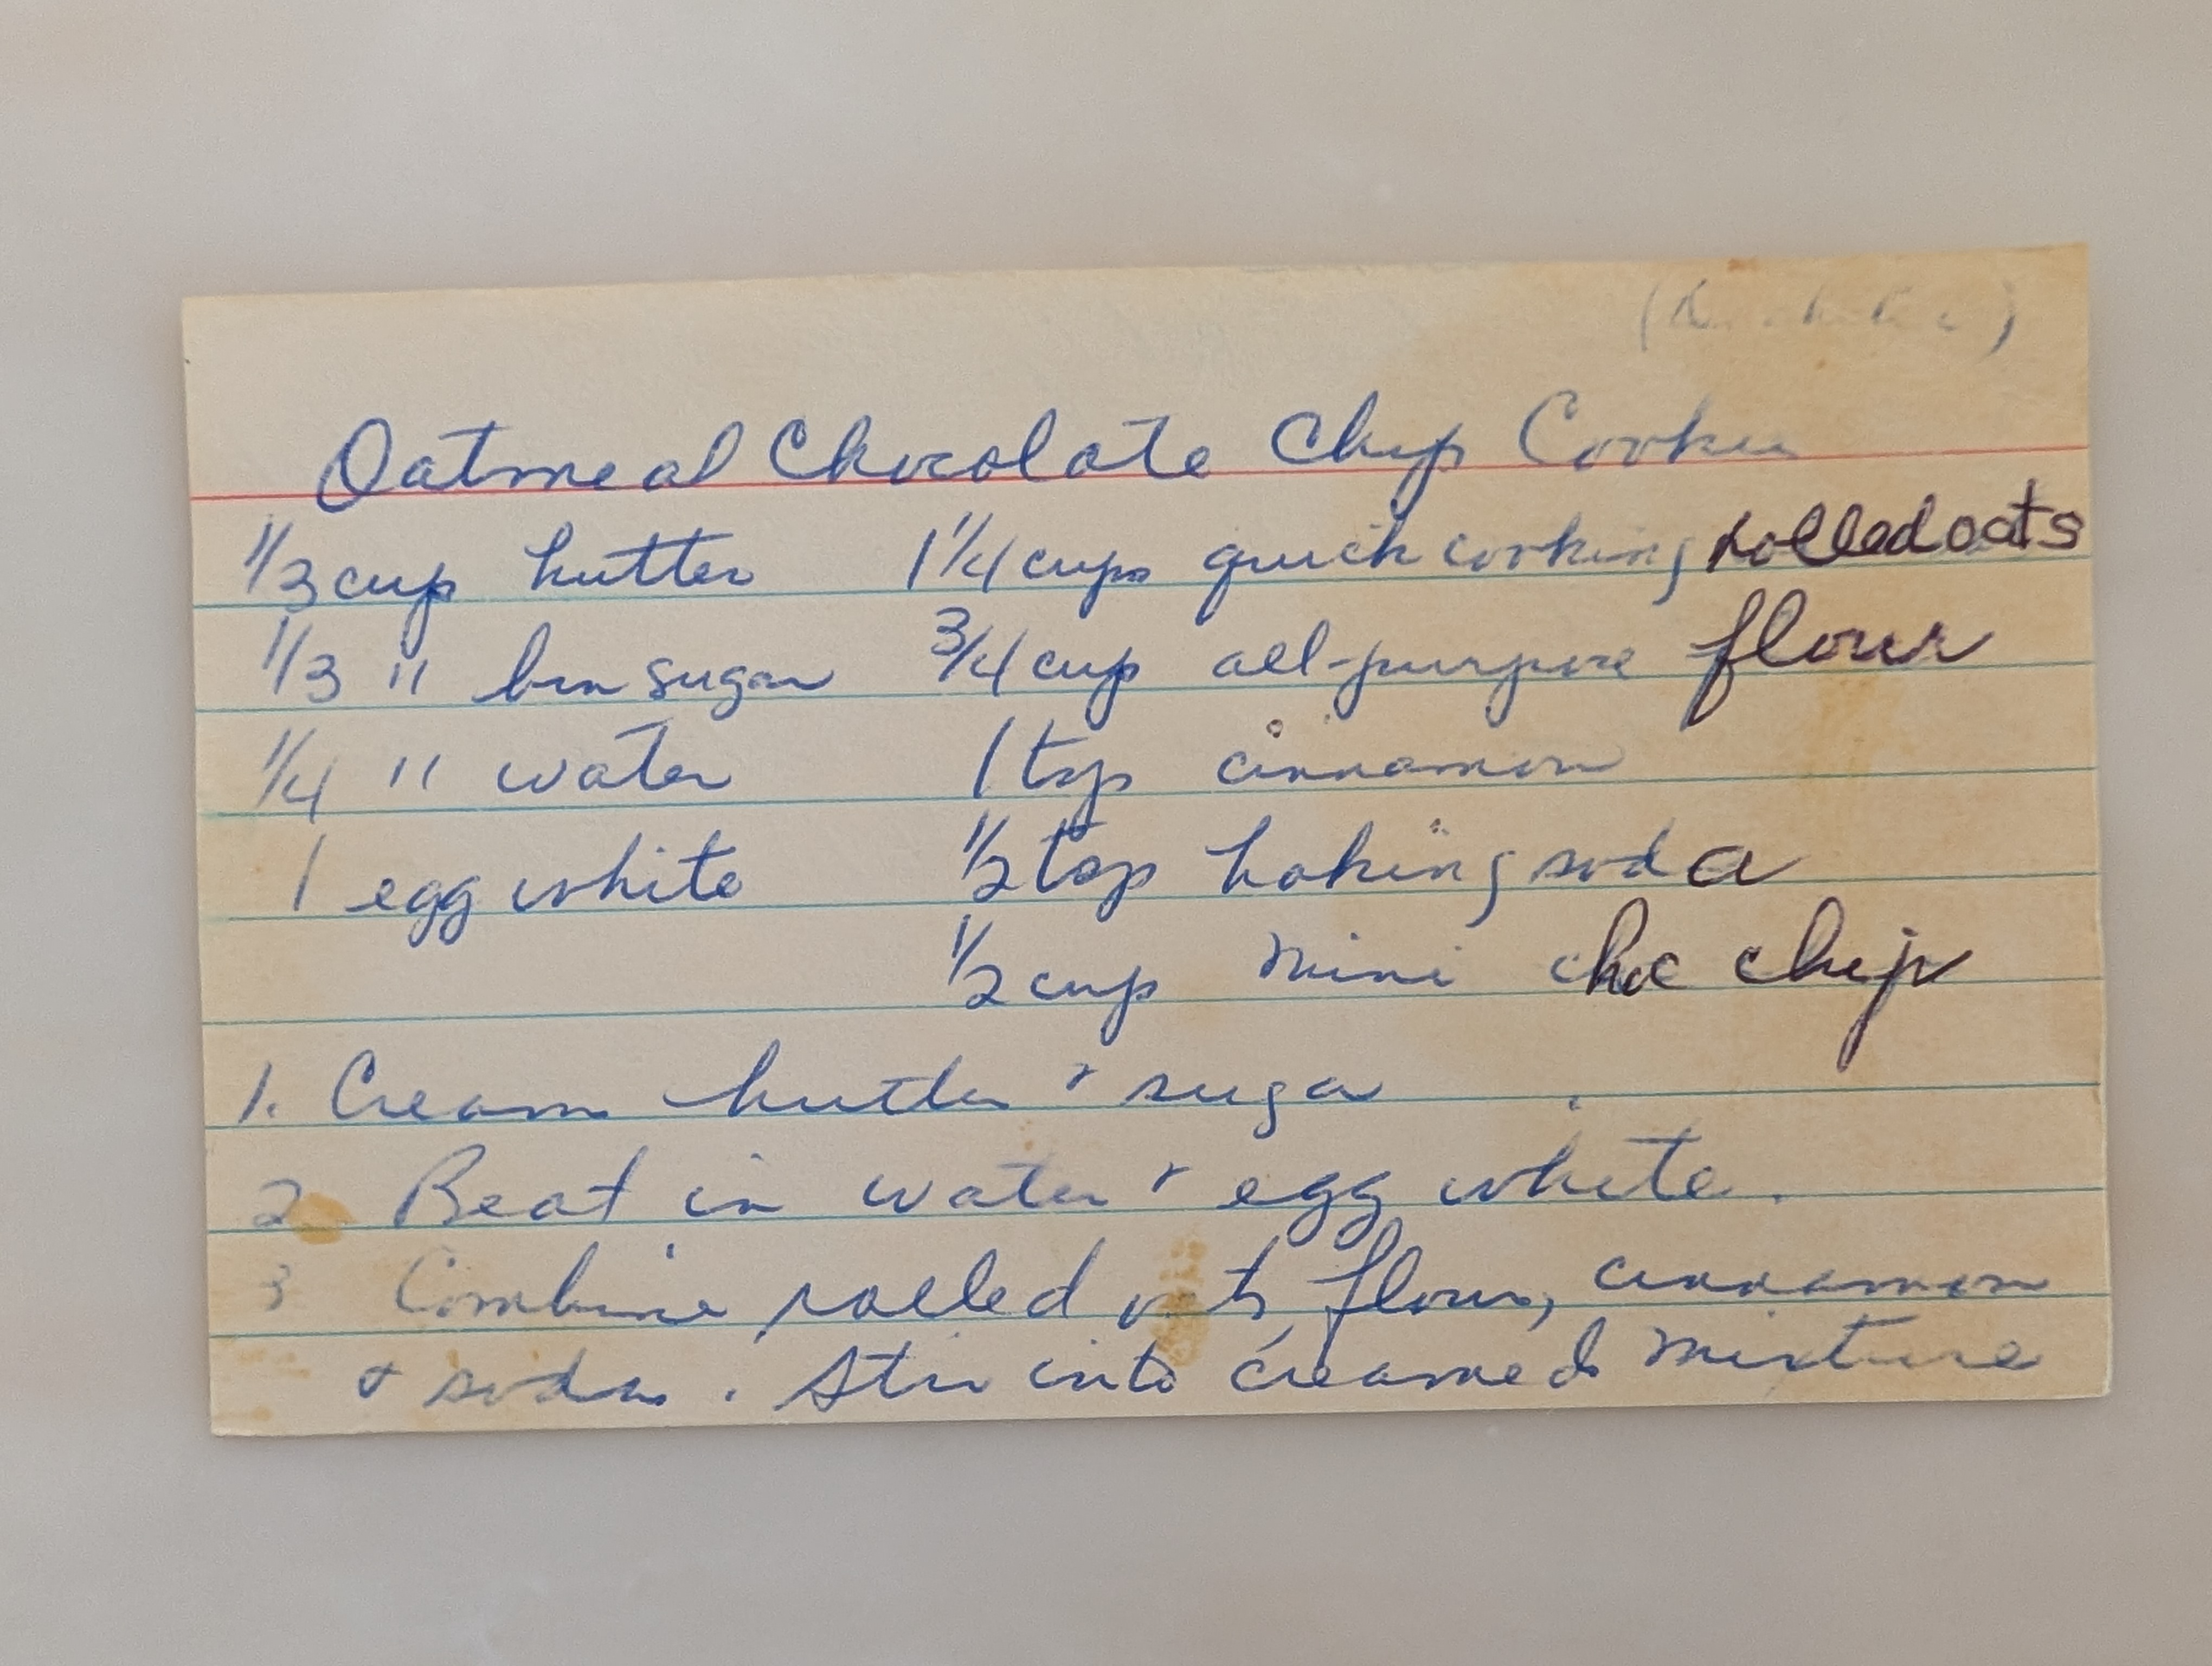 Oatmeal Chocolate Chip Cookies
1/3 cup butter 1 1/4 cups quick cooking rolled oats
1/3 " brn sugar 3/4 cup all-purpose flour
1/4 " water 1 tsp cinnamon
1 egg white 1/2 tsp baking soda
1/2 cup mini choc chip
1. Cream butter & sugar
2 Beat in water & egg white.
3 Combine rolled oats flour, cinnamon
& soda. Stir into creamed mixture